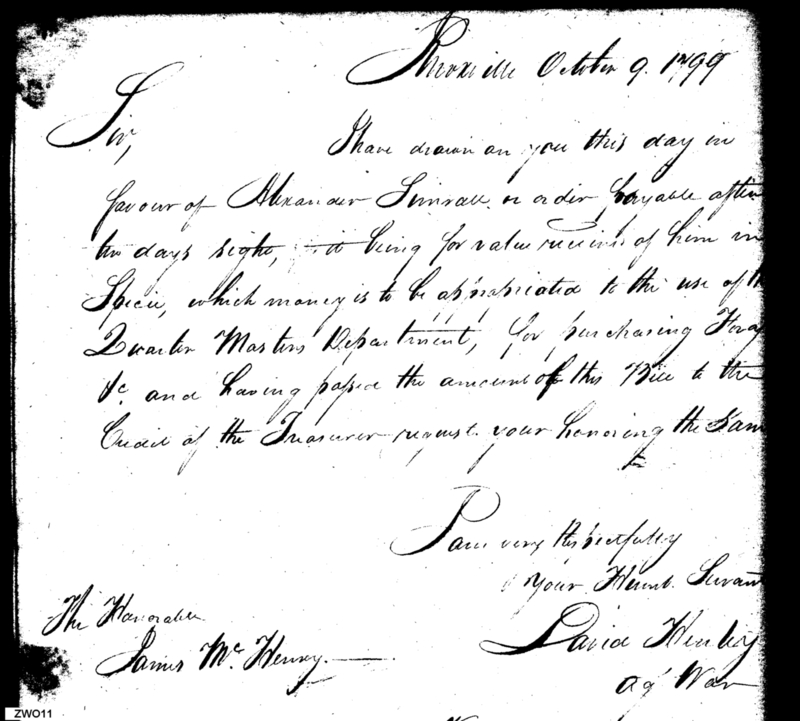 Knoxville October 9. 1799
Sir,
I have drawn on you this day in
favour of Alexander Simrall or order, payable after
ten days sight, it being for value received of him in
Specie, which money is to be appropriated to the use of th
Quarter Masters Department, for purchasing Forag
&c. and having passed the amount of this Bill to the
Credit of the Treasurer request your honoring the Sam
I am very respectfully
Your Humb. Servan
The Honorable
James Mc. Henry.
David Henley
Agt War
ZWO11